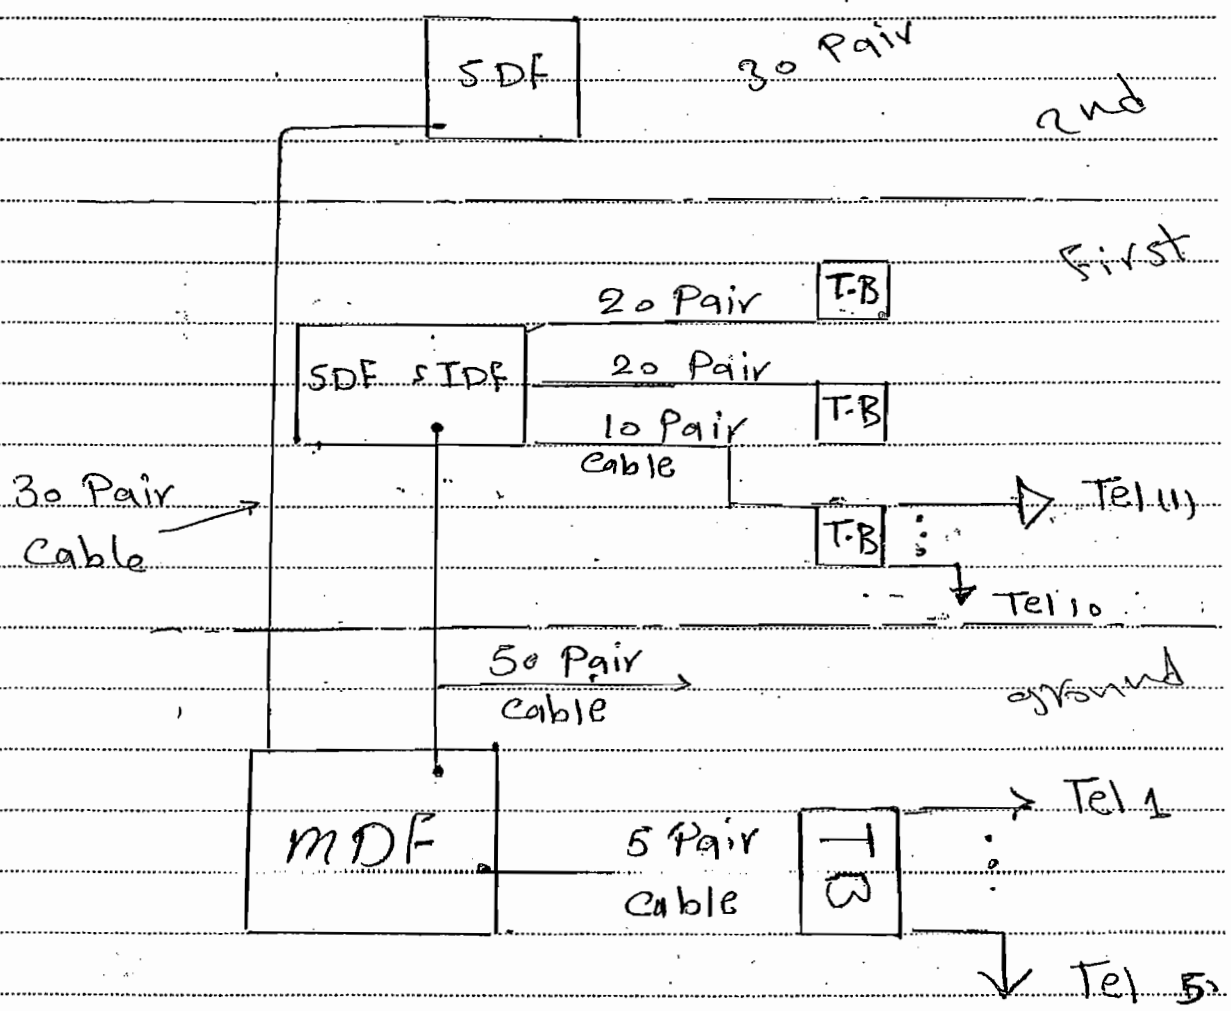 SDF
30 Pair
2nd
First
20 Pair
T.B
SDF
IDF
20 Pair
T.B
10 Pair
Cable
30 Pair
Cable
Tel (1)
T.B
Tel 10
50 Pair
Cable
ground
MDF
5 Pair
Cable
TB
Tel 1
Tel 5